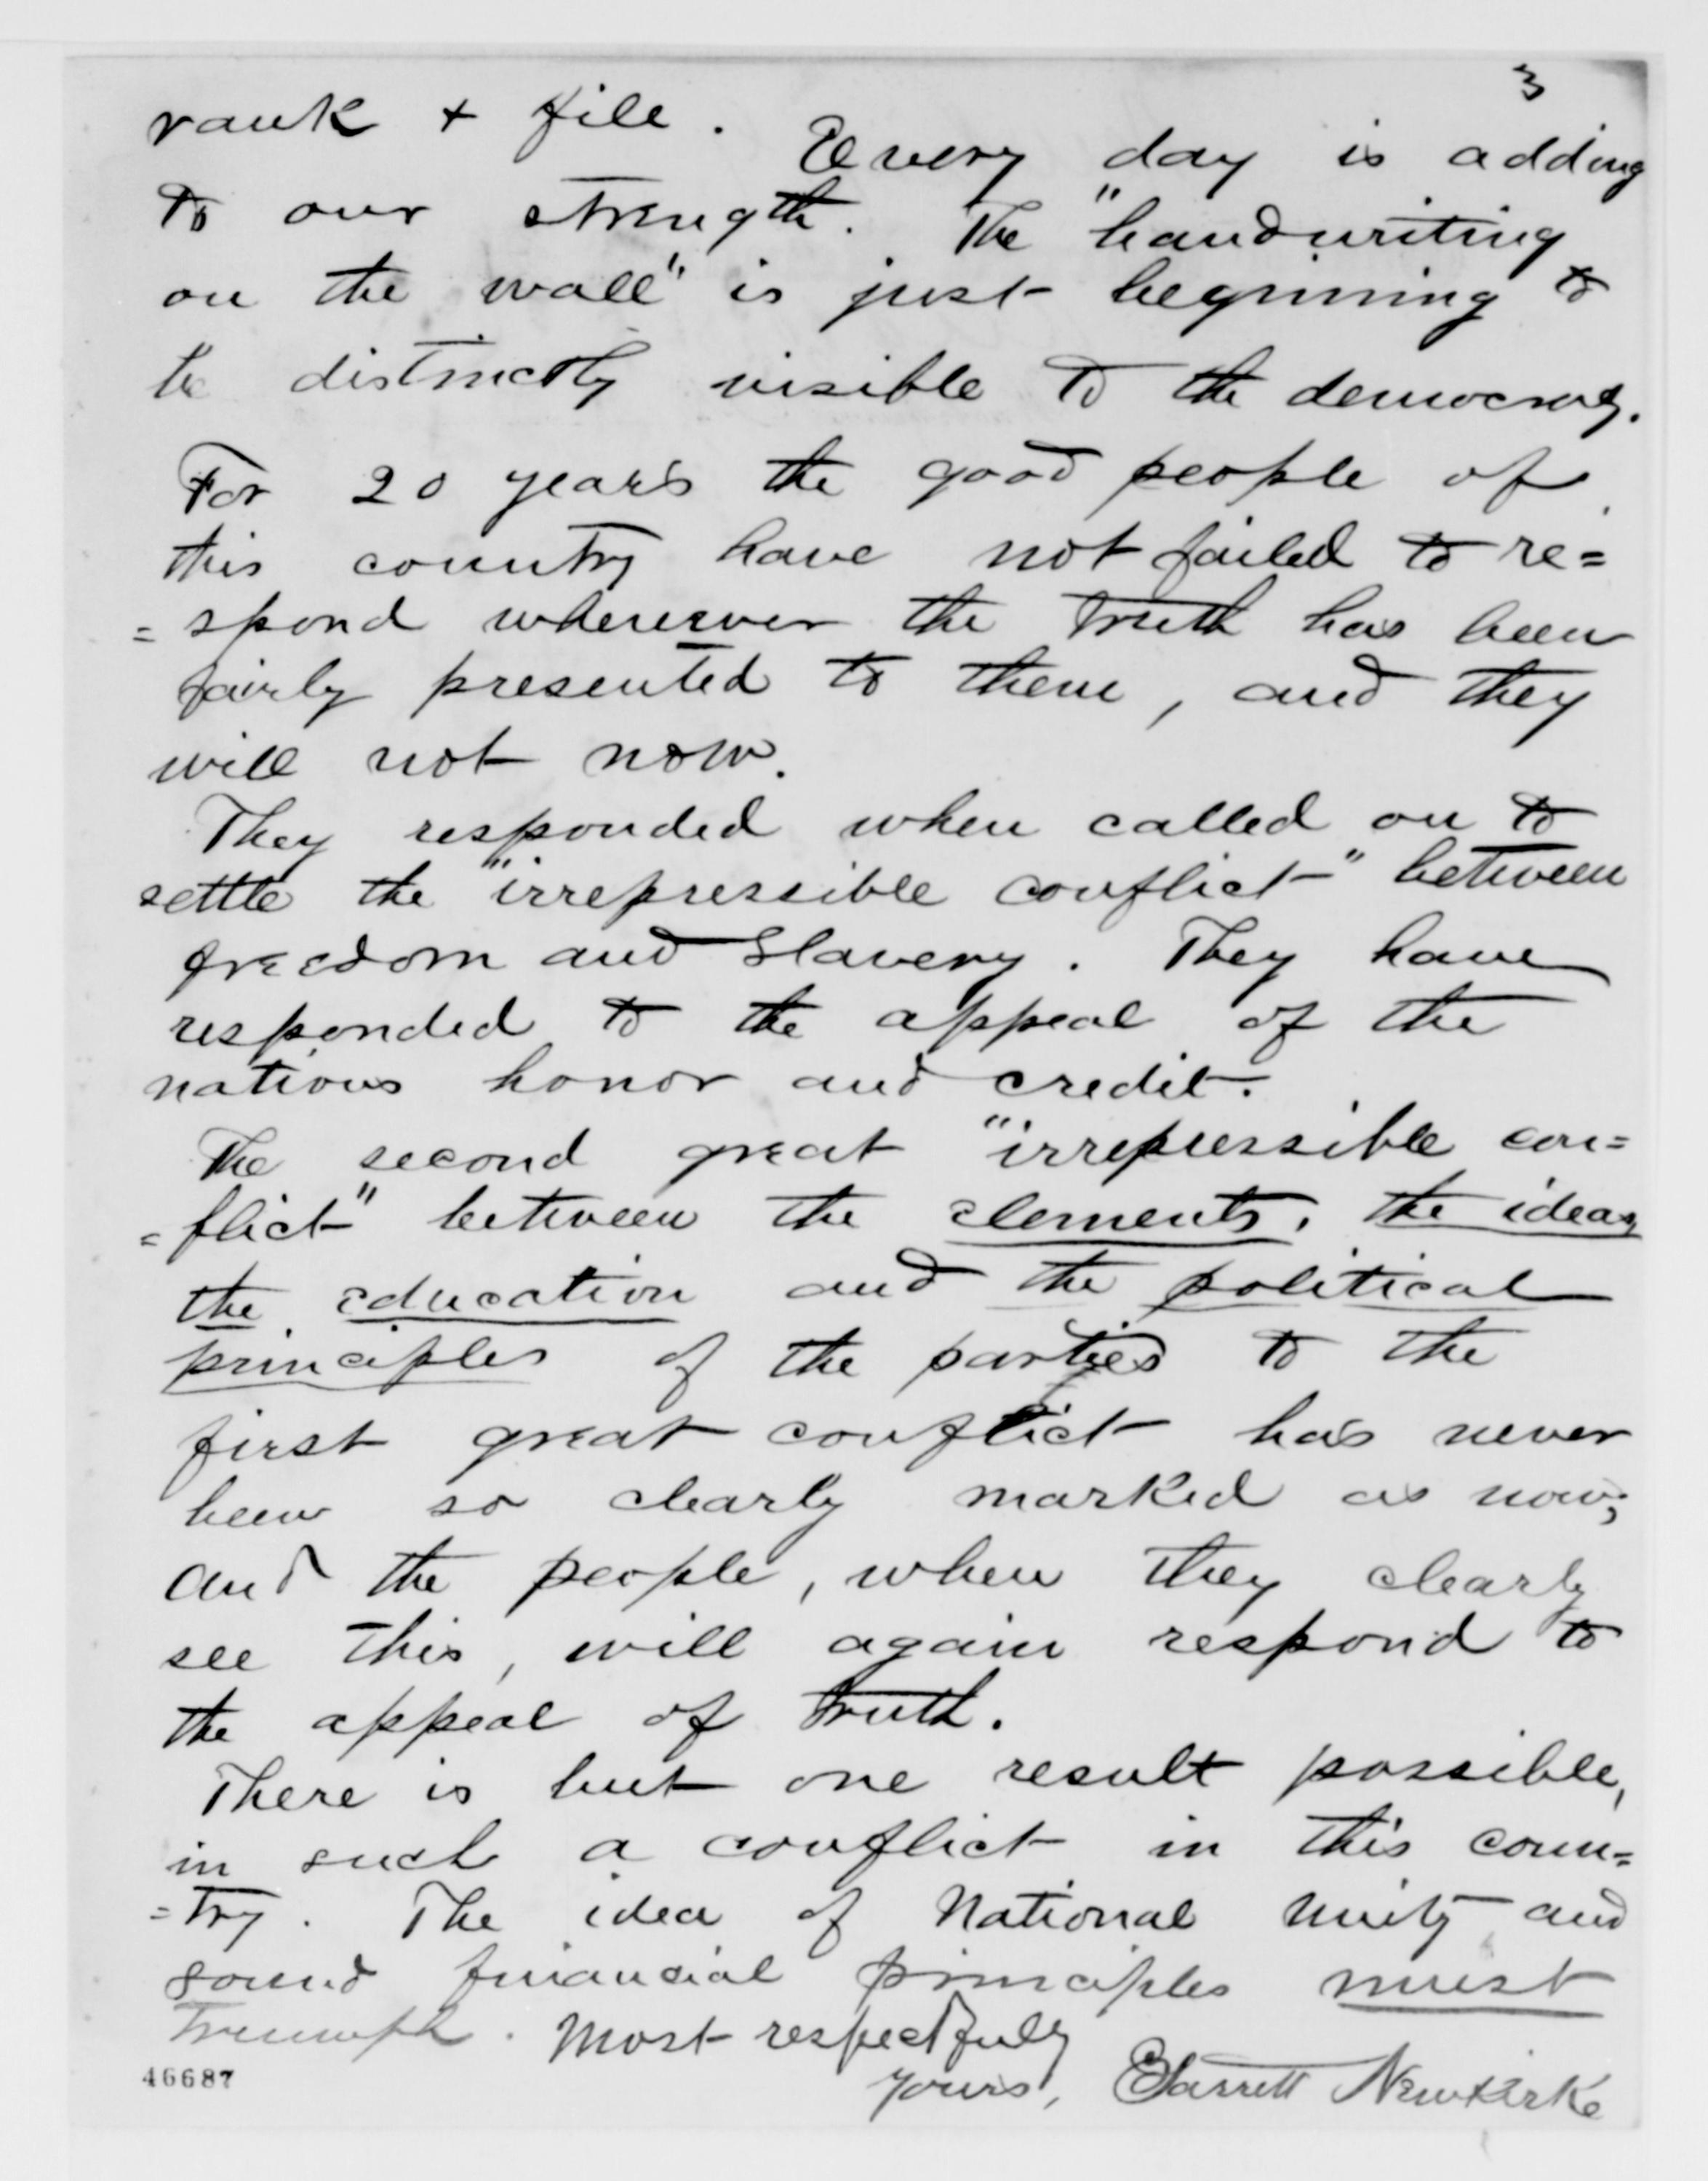 3
rank + file. Every day is adding
to our strength. The "handwriting
on the wall" is just beginning to
be distinctly visible to the democracy.
For 20 years the good people of
this country have not failed to re=
=spond whenever the truth has been
fairly presented to them, and they
will not now.
They responded when called on to
settle the "irrepressible conflict" between
freedom and Slavery. They have
responded to the appeal of the
nations honor and credit.
The second great "irrepressible con=
=flict" between the elements, the ideas
the education and the political
principles of the parties to the
first great conflict has never
been so clearly marked as now;
and the people, when they clearly
see this, will again respond to
the appeal of truth.
There is but one result possible,
in such a conflict in this coun=
=try. The idea of National Unity and
sound financial principles must
triumph. Most respectfully
yours, Garrett Newkirk
46687